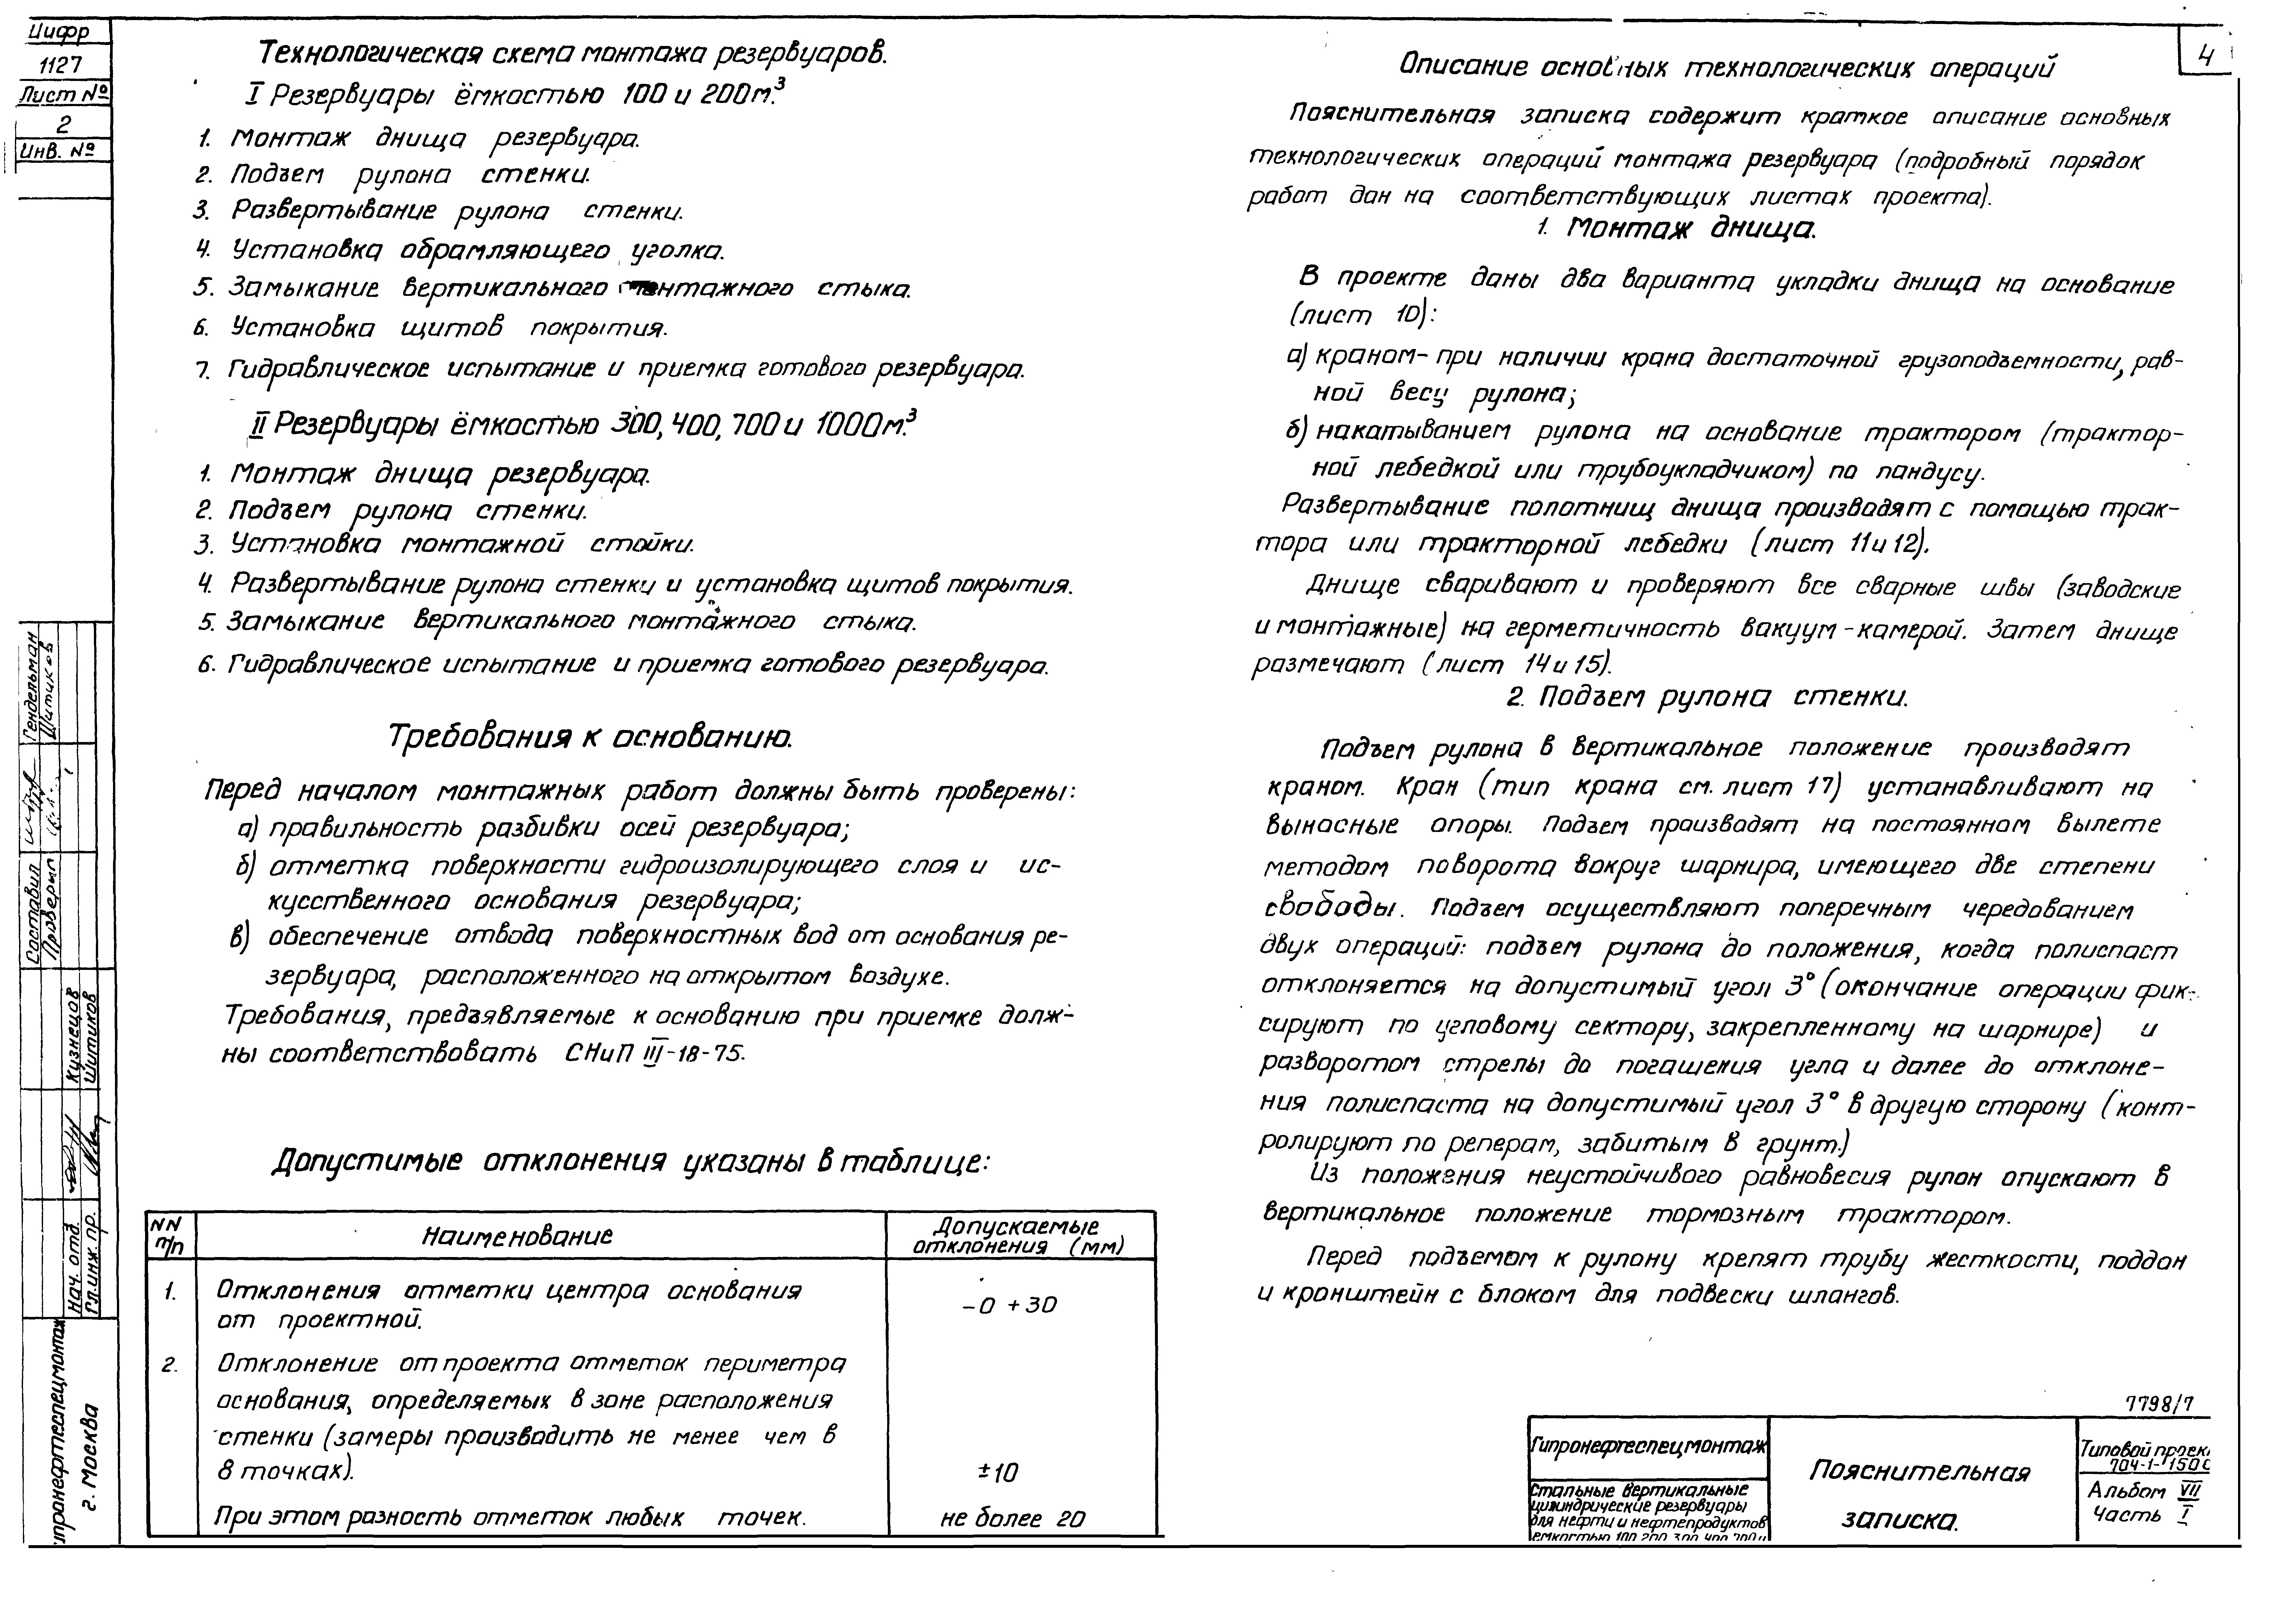 Шифр
1127
Лист №
2
Инв. №
Технологическая схема монтажа резервуаров.
I Резервуары ёмкостью 100 и 200м.³
1. Монтаж днища резервуара.
2. Подъем рулона стенки.
3. Развертывание рулона стенки.
4. Установка обрамляющего уголка.
5. Замыкание вертикального монтажного стыка.
6. Установка щитов покрытия.
7. Гидравлическое испытание и приемка готового резервуара.
II Резервуары ёмкостью 300, 400, 700 и 1000м.³
1. Монтаж днища резервуара.
2. Подъем рулона стенки.
3. Установка монтажной стойки.
4. Развертывание рулона стенки и установка щитов покрытия.
5. Замыкание вертикального монтажного стыка.
6. Гидравлическое испытание и приемка готового резервуара.
Требования к основанию.
Перед началом монтажных работ должны быть проверены:
а) правильность разбивки осей резервуара;
б) отметка поверхности гидроизолирующего слоя и ис-
кусственного основания резервуара;
в) обеспечение отвода поверхностных вод от основания ре-
зервуара, расположенного на открытом воздухе.
Требования, предъявляемые к основанию при приемке долж-
ны соответствовать СНиП III-18-75.
Допустимые отклонения указаны в таблице:
NN п/п
Наименование
Допускаемые отклонения (мм)
1. Отклонения отметки центра основания
от проектной.
-0 +30
2. Отклонение от проекта отметок периметра
основания, определяемых в зоне расположения
стенки (замеры производить не менее чем в
8 точках).
±10
При этом разность отметок любых точек.
не более 20
4
Описание основных технологических операций
Пояснительная записка содержит краткое описание основных
технологических операций монтажа резервуара (подробный порядок
работ дан на соответствующих листах проекта).
1. Монтаж днища.
В проекте даны два варианта укладки днища на основание
(лист 10):
а) краном - при наличии крана достаточной грузоподъемности, рав-
ной весу рулона;
б) накатыванием рулона на основание трактором (трактор-
ной лебедкой или трубоукладчиком) по пандусу.
Развертывание полотнищ днища производят с помощью трак-
тора или тракторной лебедки (лист 11 и 12).
Днище сваривают и проверяют все сварные швы (заводские
и монтажные) на герметичность вакуум-камерой. Затем днище
размечают (лист 14 и 15).
2. Подъем рулона стенки.
Подъем рулона в вертикальное положение производят
краном. Кран (тип крана см. лист 17) устанавливают на
выносные опоры. Подъем производят на постоянном вылете
методом поворота вокруг шарнира, имеющего две степени
свободы. Подъем осуществляют поперечным чередованием
двух операций: подъем рулона до положения, когда полиспаст
отклоняется на допустимый угол 3° (окончание операции фик-
сируют по угловому сектору, закрепленному на шарнире) и
разворотом стрелы до погашения угла и далее до отклоне-
ния полиспаста на допустимый угол 3° в другую сторону (конт-
ролируют по реперам, забитым в грунт.)
Из положения неустойчивого равновесия рулон опускают в
вертикальное положение тормозным трактором.
Перед подъемом к рулону крепят трубу жесткости, поддон
и кронштейн с блоком для подвески шлангов.
7798/7
Гипронефтеспецмонтаж
Стальные вертикальные
цилиндрические резервуары
для нефти и нефтепродуктов
емкостью 100 200 300 400 700 и
Пояснительная
записка.
Типовой проек
704-1-150С
Альбом VII
Часть I
Гендельман
Шитиков
Составил
Проверил
Кузнецов
Шитиков
Нач. отд.
Гл. инж. пр.
ипронефтеспецмонтаж
г. Москва